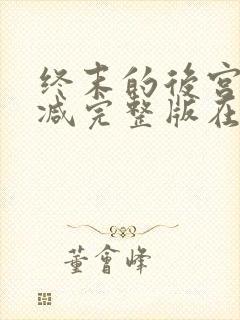 终末的後宫
减完整版在
董會峰